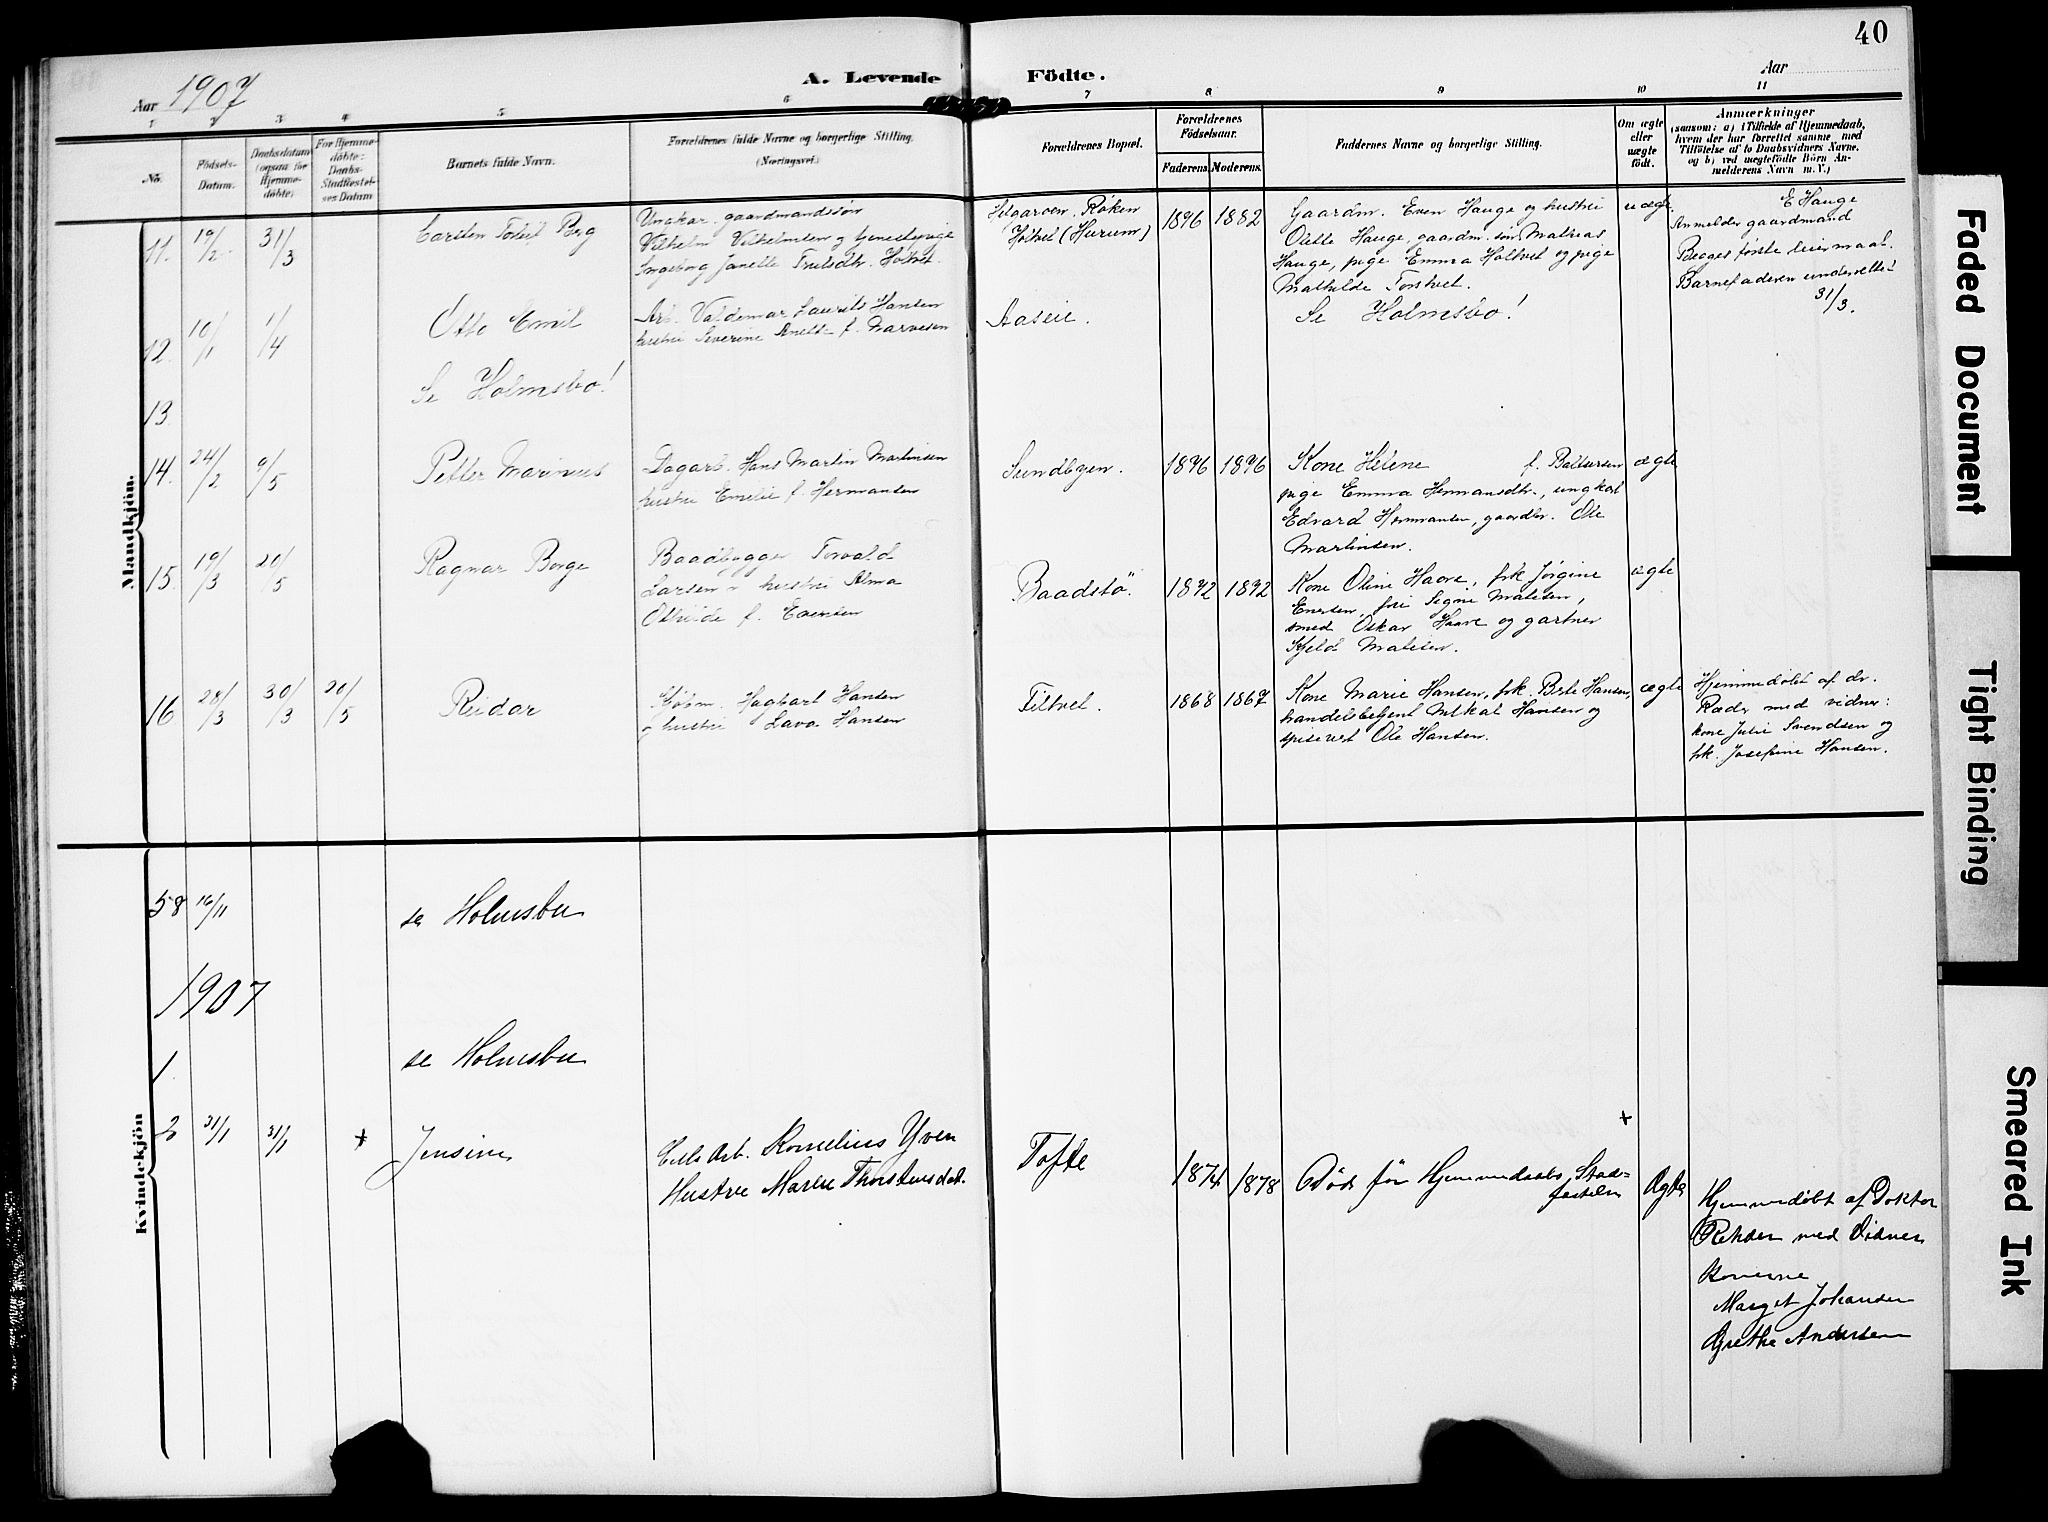 40
Aar 1907
A. Levende Födte.
Aar
1 2 3 4 5 6 7 8 9 10 11
No.
Födsels-
Datum.
Daabsdatum
(ogsaa for
Hjemme-
döbte)
For Hjemme-
döbte:
Daabs-
Stadfæstel-
ses Datum
Barnets fulde Navn.
Forældrenes fulde Navne og borgerlige Stilling.
(Næringsvei.)
Forældrenes Bopæl.
Forældrenes
Födselsaar.
Faderens. Moderens.
Faddernes Navne og borgerlige Stilling.
Om ægte
eller
uægte
födt.
Anmærkninger
(saasom: a) i Tilfælde af Hjemmedaab,
hvem der har forrettet samme med
Tilföielse af to Daabsvidners Navne.
og b) ved uægtefödte Börn An-
melderens Navn m. V.)
Mandkjön.
11. 19/2 31/3
Carsten Berg
Ungkar. gaardmandssøn
Vilhelm Vilhelmsen og tjenestepige
Ingeborg Janette Trulsdtr. Holtvet.
Røken
Holtvet (Hurum)
1876 1882
Gaardm. Even Hauge og hustru
Olette Hauge, gaardm. søn Mathias
Hauge, pige Emma Holtvet og pige
Mathilde Torstvet.
uægte
E Hauge
Anmelder gaardmand
Begges første leiermaal.
Barnefaderen underrettet
31/3.
12. 10/1 1/4
Otto Emil
Arb. Valdemar Laurits Hansen
hustru Severine Anette f. Narvesen
Aaseie.
Se Holmsbo!
13.
Se Holmsbo!
14. 24/2 9/5
Petter Marinus
Dagarb. Hans Martin Martinsen
hustru Emelie f. Hermansen
Sundbyen.
1876 1876
Kone Helene f. Baltsersen
pige Emma Hermansdtr., ungkal
Edvard Hermansen, gaardbr. Ole
Martinsen.
ægte
15. 19/3 20/5
Ragnar Borge
Baadbygger Torvald
Larsen - hustru Alma
Othilde f. Evensen
Baadstö.
1872 1872
Kone Oline Haave, frk Jørgine
Enersen, fru Signe Matisen,
smed Oskar Haave og gartner
Kjeld Matisen.
ægte
16 28/3 30/3 20/5
Reidar
Kjøbm. Hagbart Hansen
og hustru Lava Hansen
Tiltvet.
1868 1867
Kone Marie Hansen, frk. Hansen,
handelsbetjent Hansen og
spisevert Ole Hansen.
ægte
Hjemmedøbt af dr.
Ræder med vidner:
kone Julie Svendsen og
frk. Josefine Hansen.
Kvindekjön
58 16/11
se Holmsbu
1907
1.
se Holmsbu
2 31/1 31/1 +
Jensine
Cell. Arb. Kornelius Yven
Hustru Maren Thorstensdat.
Tofte
1874 1878
Død før Hjemmedaabs, Stad-
festelse
+
Ægte
Hjemmedøbt af Doktor
Rehder med Vidner
Konerne
Marget Johansen
Grethe Andersen
Faded Document
Tight Binding
Smeared Ink